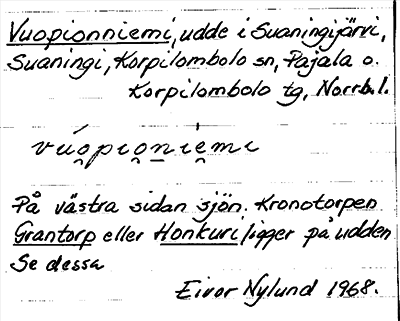 Vuopionniemi, udde i Suaningijärvi,
Suaningi, Korpilombolo sn, Pajala o.
Korpilombolo tg, Norrb. l.
vúo̯pi̯onie̯mi
På västra sidan sjön. Kronotorpen
Grantorp eller Honkuri ligger på udden
Se dessa
Eivor Nylund 1968.